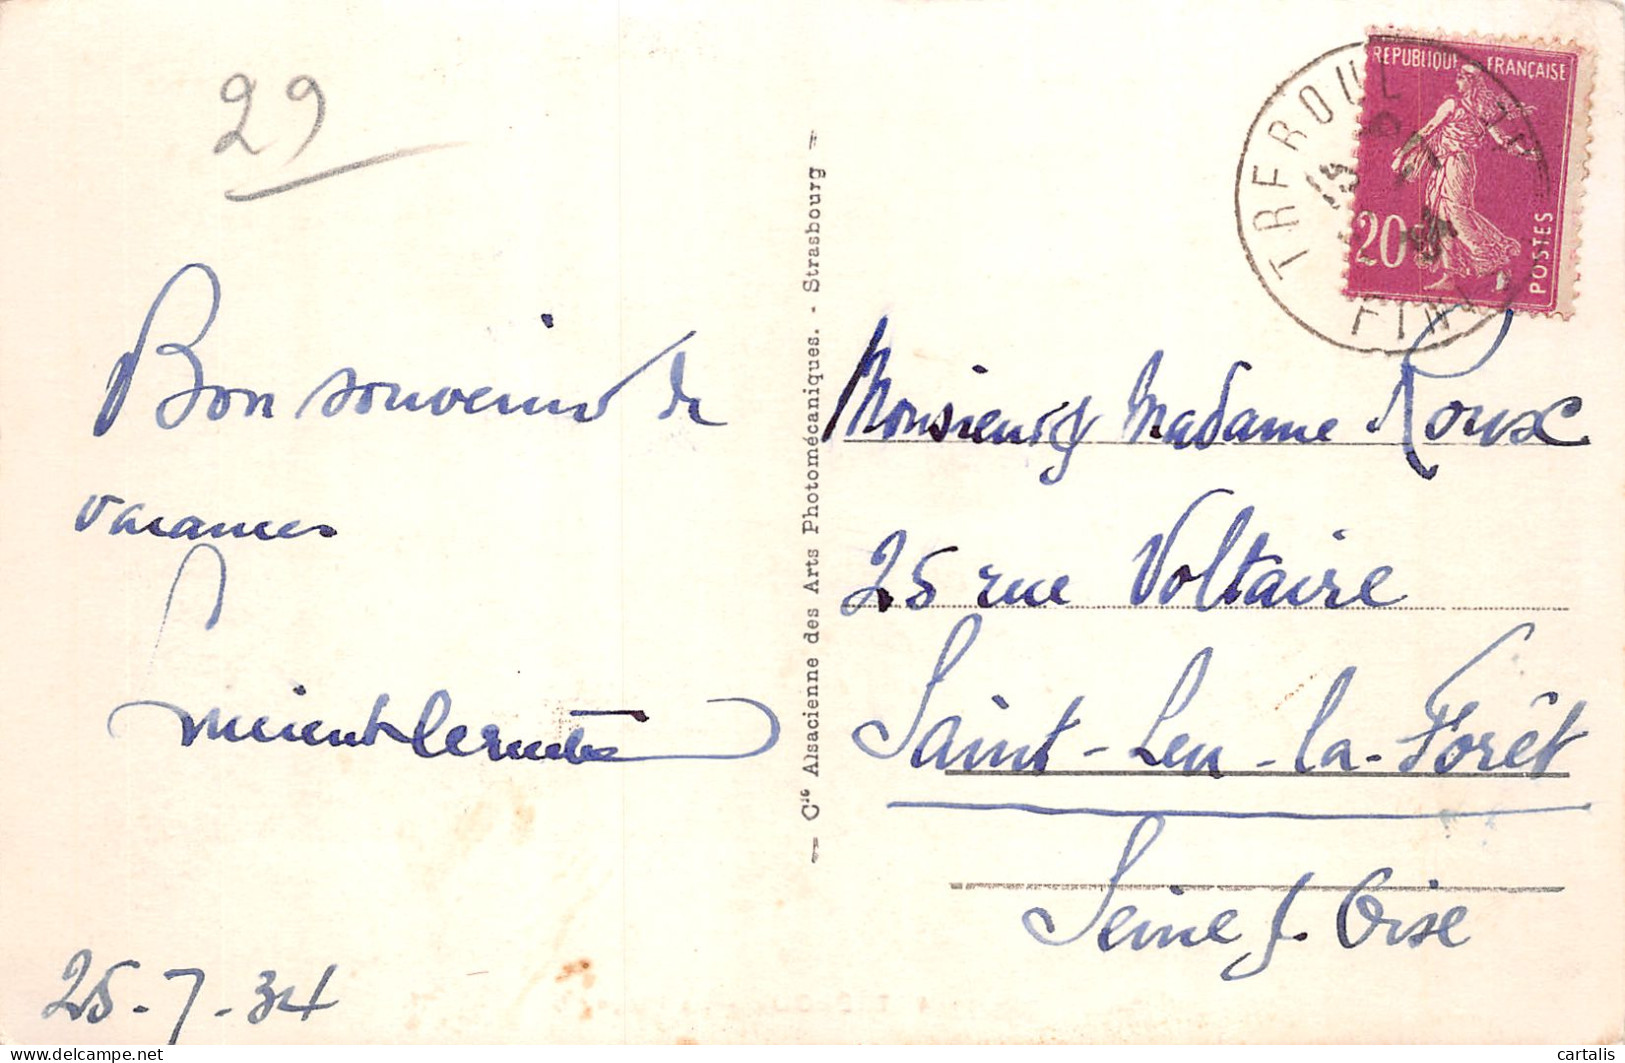 29
Bon souvenir de
vacances
25-7-34
— Cie Alsacienne des Arts Photomécaniques. - Strasbourg —
REPUBLIQUE FRANÇAISE
20
POSTES
Monsieur & Madame Roux
25 rue Voltaire
Saint-Leu-la-Forêt
Seine & Oise
cartalis